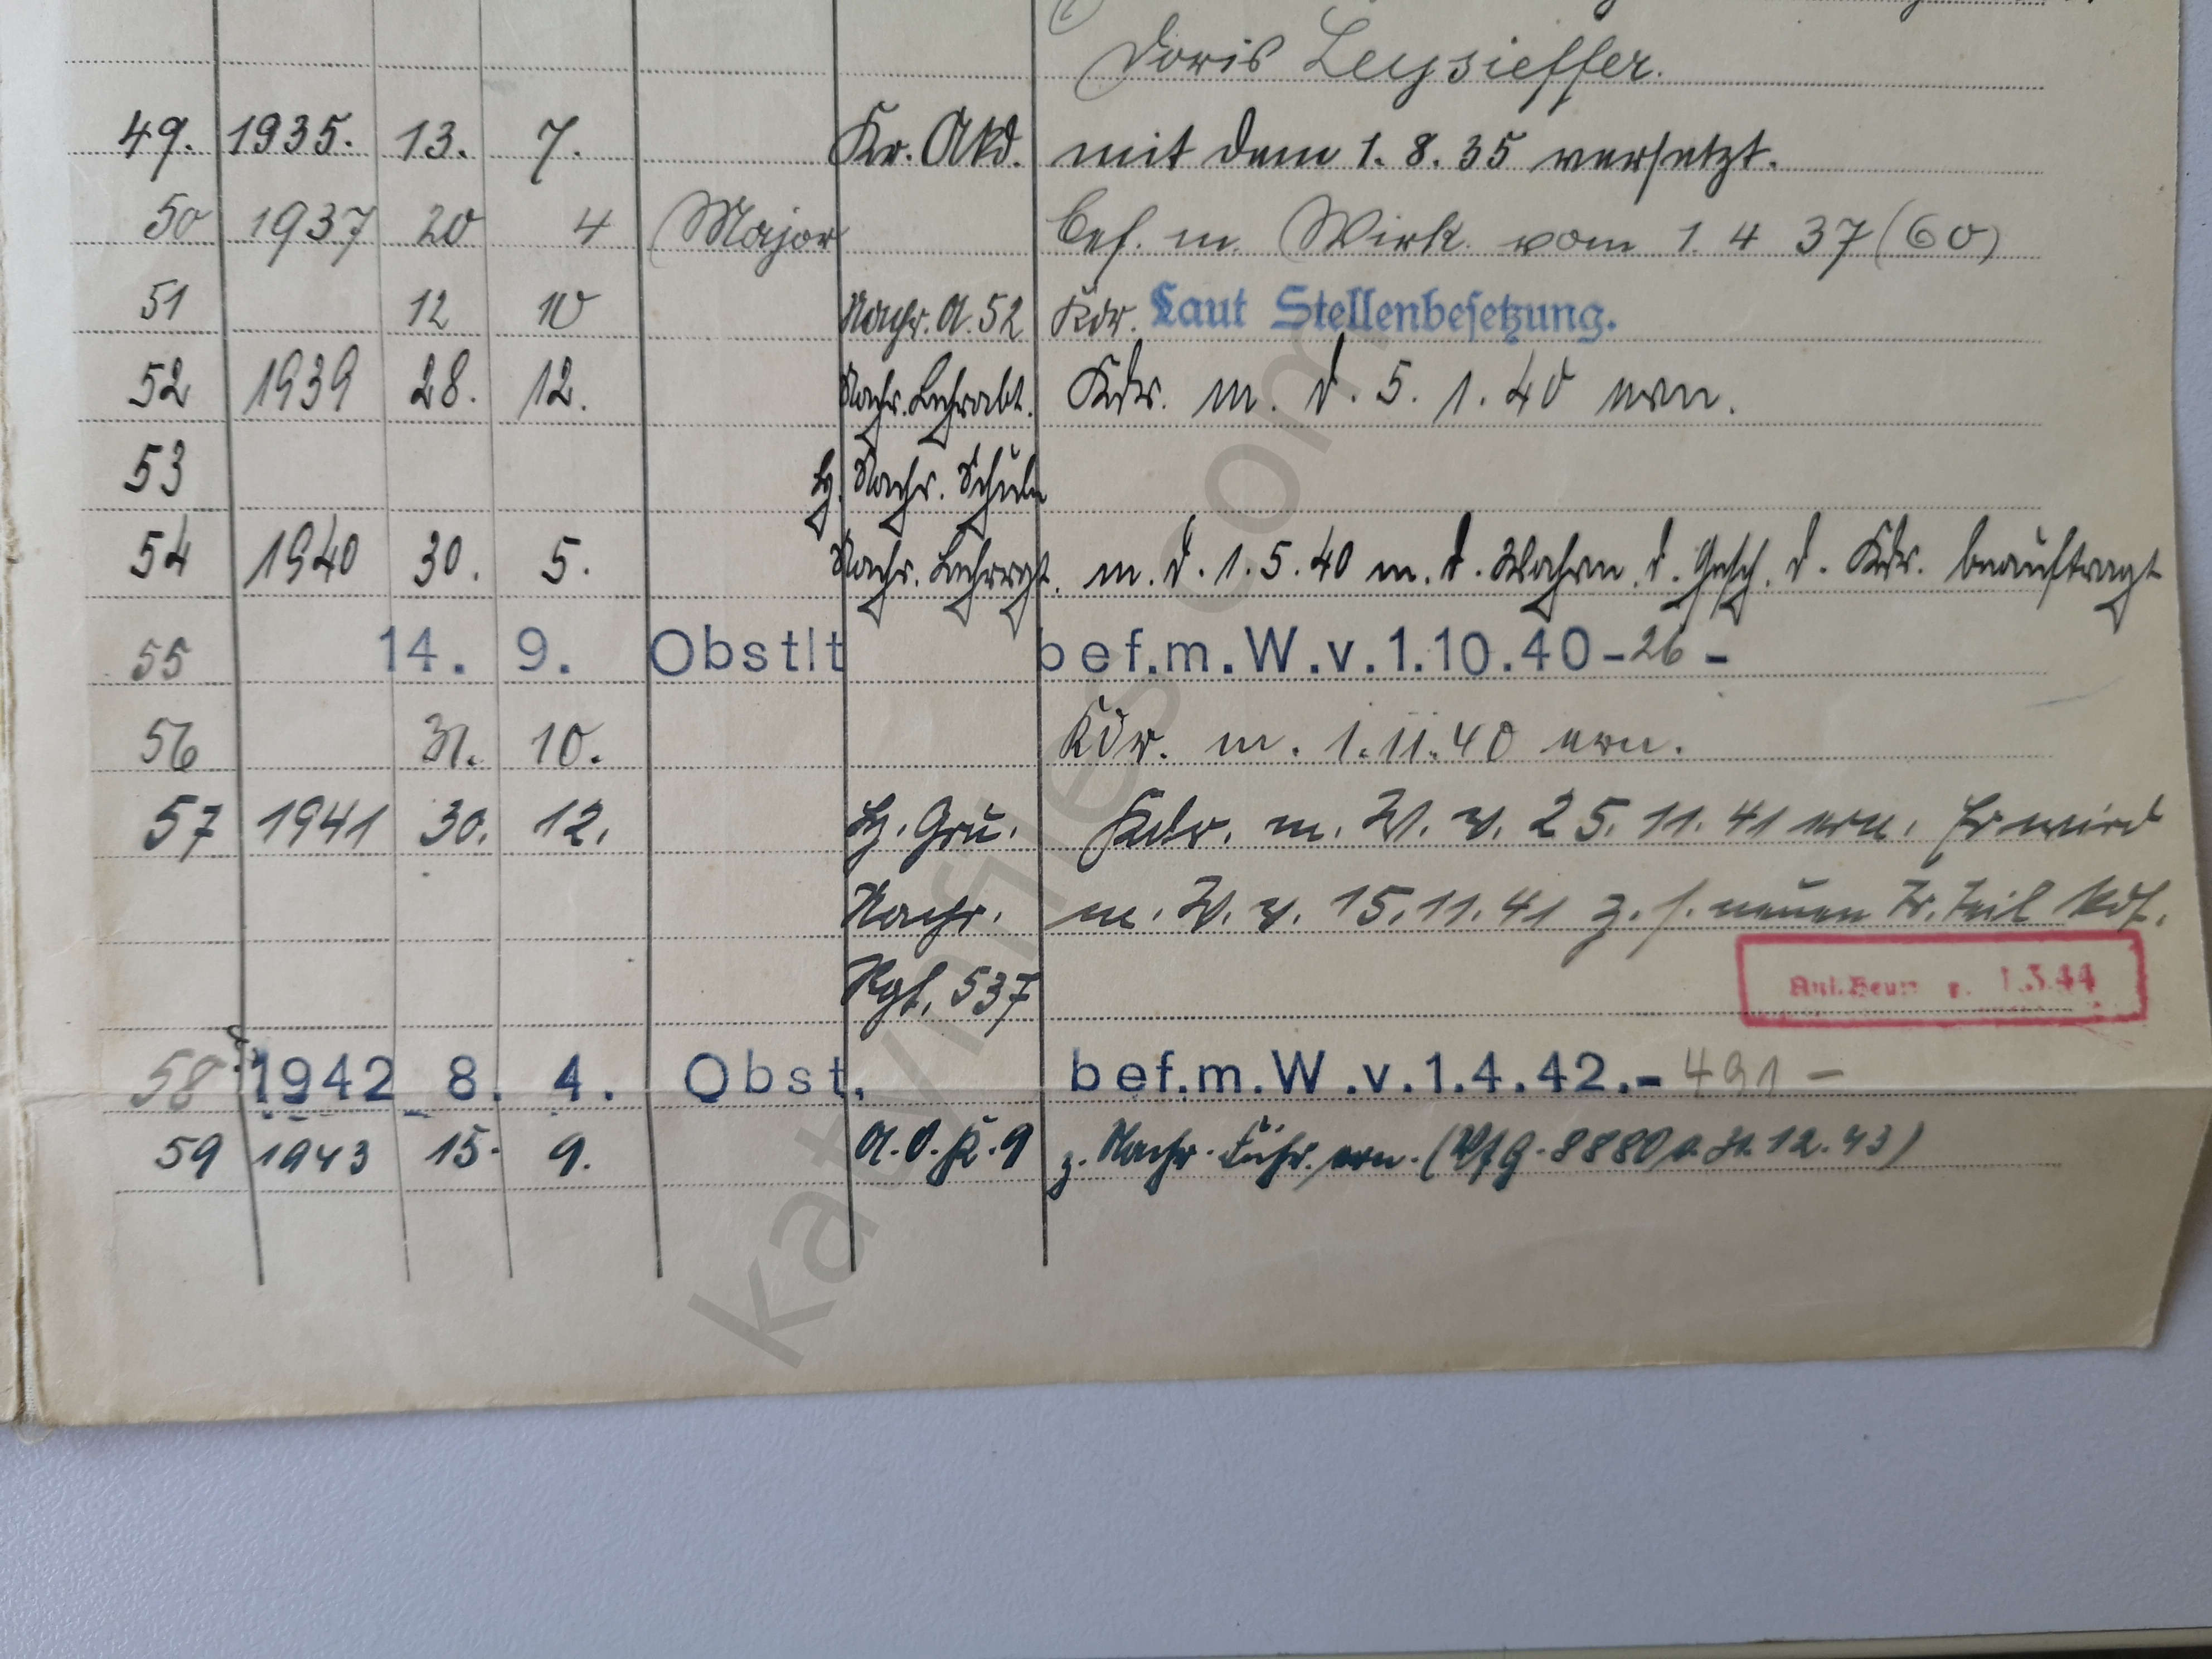 Doris Leysieffer.
49. 1935. 13. 7. Kr. Akd. mit dem 1. 8. 35 versetzt.
50 1937 20 4 Major bef. m. Wirk. vom 1. 4 37 (60)
51 12 10 Nachr. A. 52 Kdr. Laut Stellenbesetzung.
52 1939 28. 12. Nachr. Lehrabt. Kdr. m. d. 5. 1. 40 ern.
53 H. Nachr. Schule
54 1940 30. 5. Nachr. Lehrrgt. m. d. 1. 5. 40 m. d. Wahrn. d. Gesch. d. Kdr. beauftragt
55 14. 9. Obstlt bef.m.W.v.1.10.40-26-
56 31. 10. Kdr. m. 1.11.40 ern.
57 1941 30. 12. H. Gru. Kdr. m. W. v. 25. 11. 41 ern. Er wird
Nachr. m. W. v. 15. 11. 41 z. s. neuen Tr. Teil kdt.
Rgt. 537
1.3.44
58 1942 8. 4. Obst. bef.m.W.v.1.4.42.-491-
59 1943 15. 9. A.O.K. 9 z. Nachr. Führ. ern. (Vfg. 8880 12. 43)
katynfiles.com